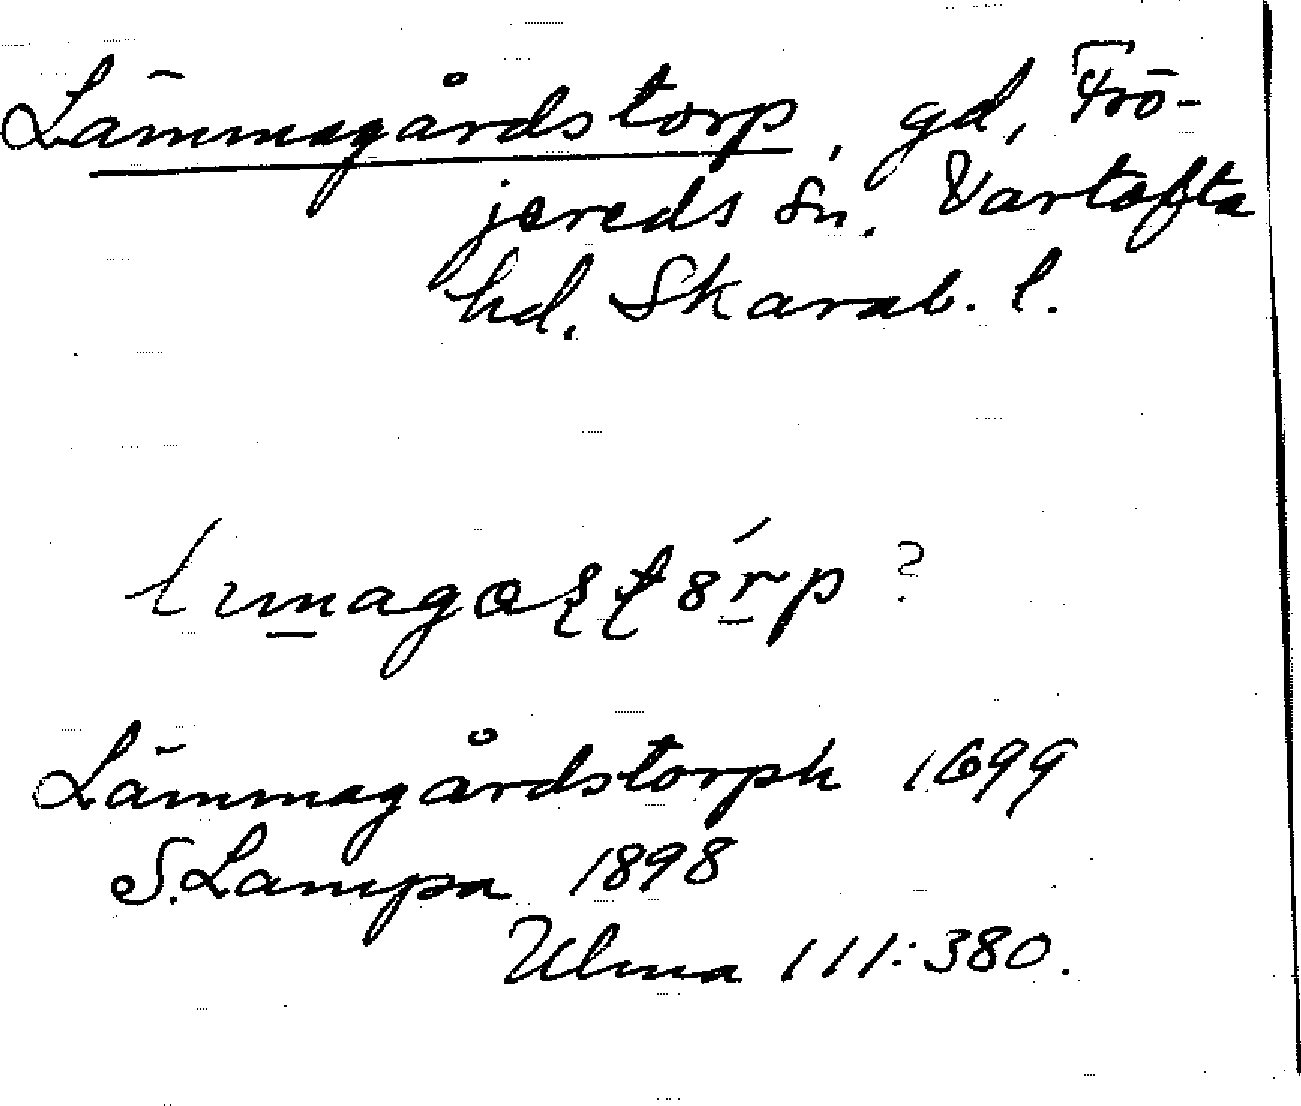 Lämmagårdstorp, gd, Frö-
jereds sn. Vartofta
hd. Skarab. l.
?
Lämmagårdstorph 1699
S. Lampa 1898
Ulma 111:380.